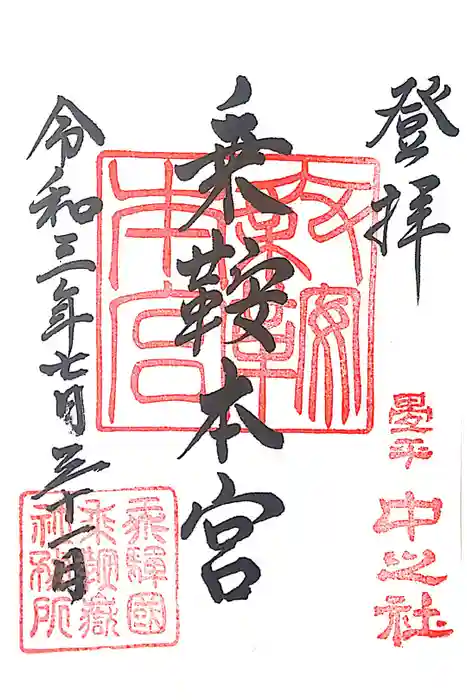 登拝
畳平
中之社
乗鞍本宮
乗鞍
本宮
令和三年七月三十一日
飛騨國
乗鞍嶽
社務所